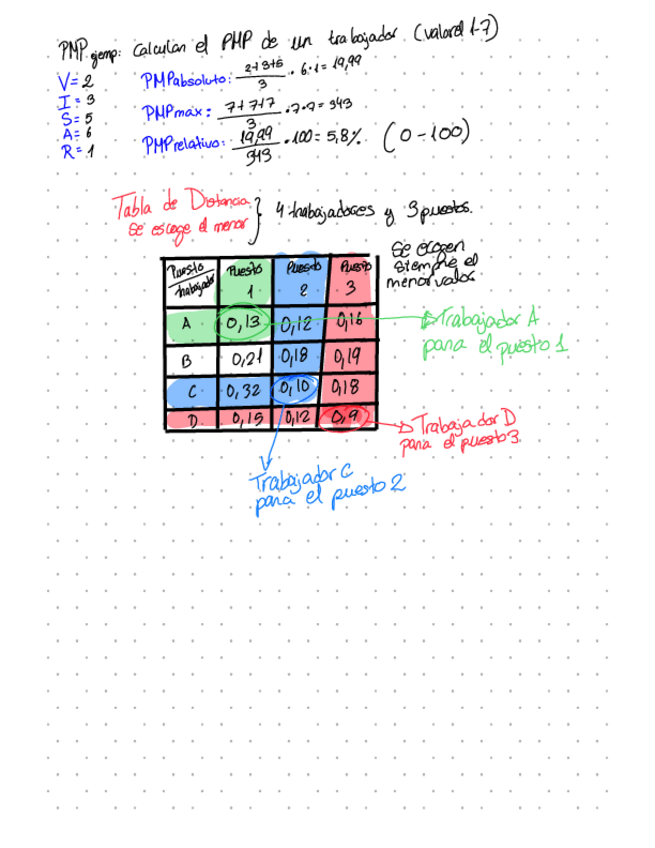 PMP ejemp: Calcular el PMP de un trabajador (valores 1-7)
V= 2
I= 3
S= 5
A= 6
R= 1
PMPabsoluto: 2+3+5/3 · 6·1= 19,99
PMPmax: 7+7+7/3 · 7·7= 343
PMPrelativo: 19,99/343 · 100= 5,8% (0-100)
Tabla de Distancia
se escoge el menor } 4 trabajadores y 3 puestos.
Se escogen siempre el menor valor
Puesto/trabajador Puesto 1 Puesto 2 Puesto 3
A 0,13 0,12 0,16
B 0,21 0,18 0,19
C 0,32 0,10 0,18
D 0,15 0,12 0,9
Trabajador A
para el puesto 1
Trabajador D
para el puesto 3
Trabajador C
para el puesto 2